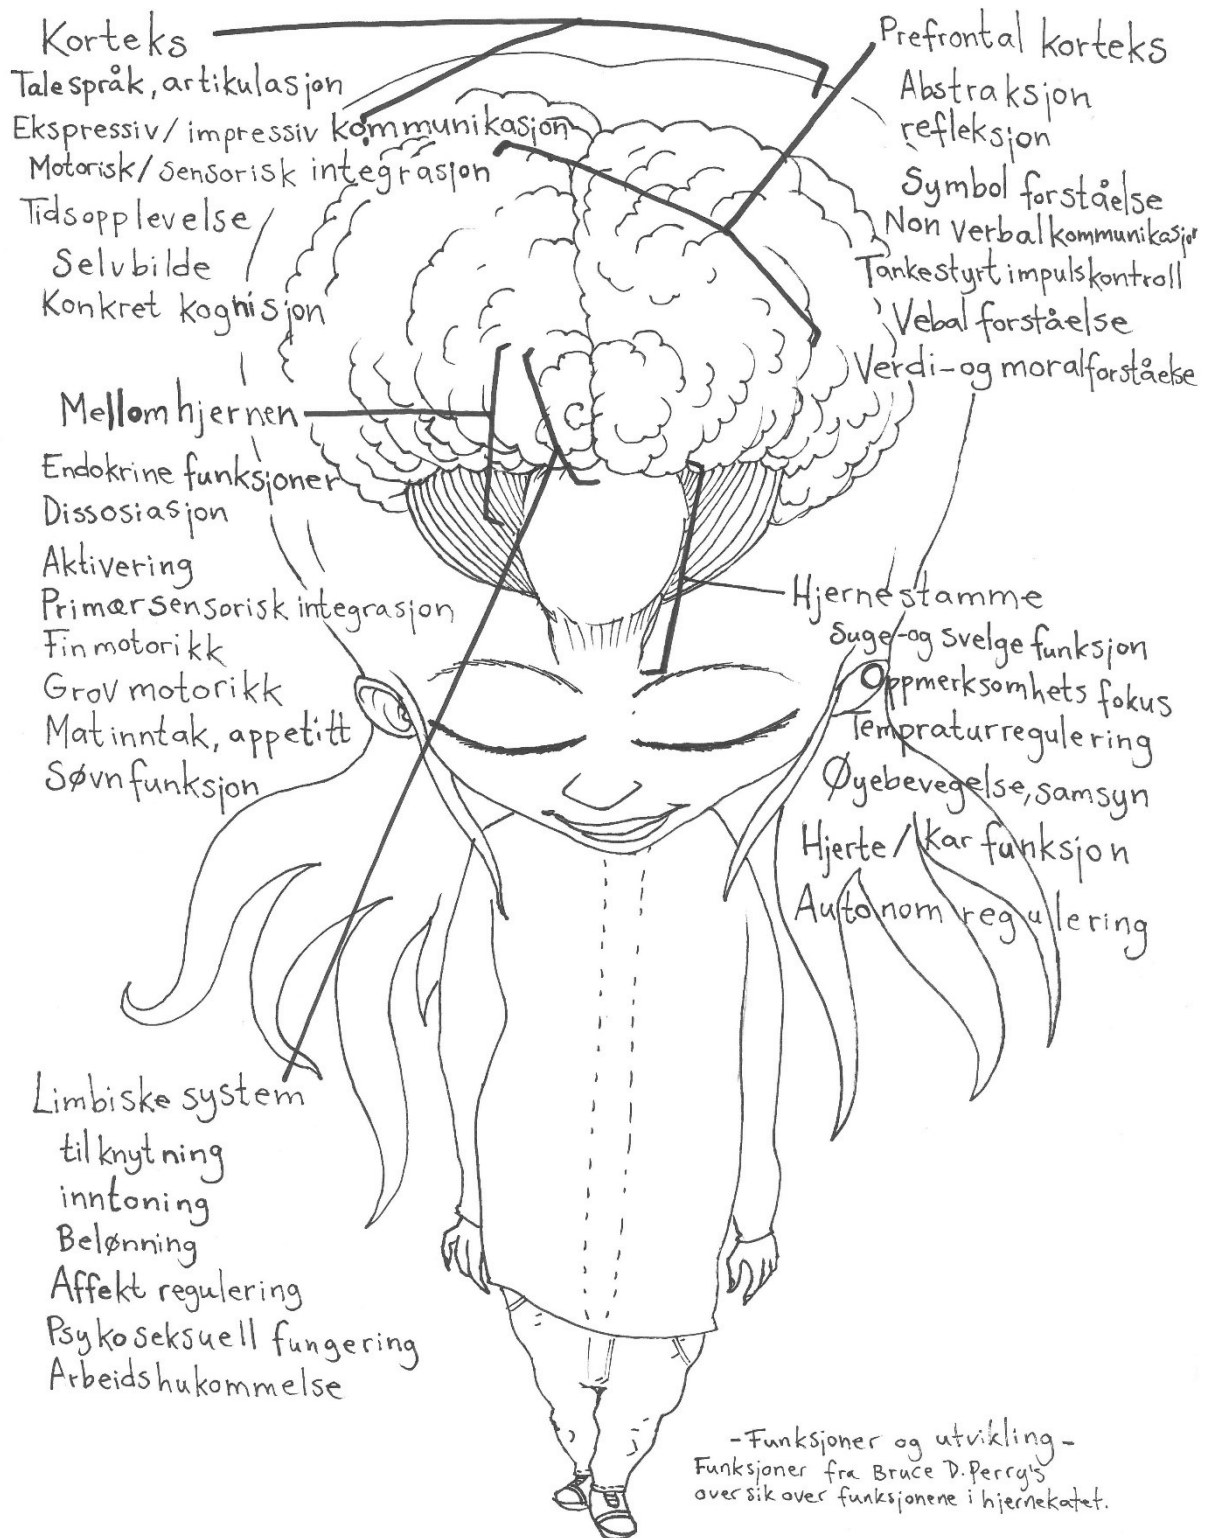 Korteks
Talespråk, artikulasjon
Ekspressiv/impressiv kommunikasjon
Motorisk/sensorisk integrasjon
Tidsopplevelse
Selvbilde
Konkret kognisjon
Prefrontal korteks
Abstraksjon
refleksjon
Symbol forståelse
Non verbal kommunikasjon
Tankestyrt impulskontroll
Vebal forståelse
Verdi-og moralforståelse
Mellomhjernen
Endokrine funksjoner
Dissosiasjon
Aktivering
Primær sensorisk integrasjon
Finmotorikk
Grov motorikk
Mat inntak, appetitt
Søvnfunksjon
Hjernestamme
Suge-og svelge funksjon
Oppmerksomhets fokus
Tempraturregulering
Øyebevegelse, samsyn
Hjerte/kar funksjon
Autonom regulering
Limbiske system
tilknytning
inntoning
Belønning
Affekt regulering
Psykoseksuell fungering
Arbeidshukommelse
-Funksjoner og utvikling-
Funksjoner fra Bruce D. Perry's
over sik over funksjonene i hjernekatet.